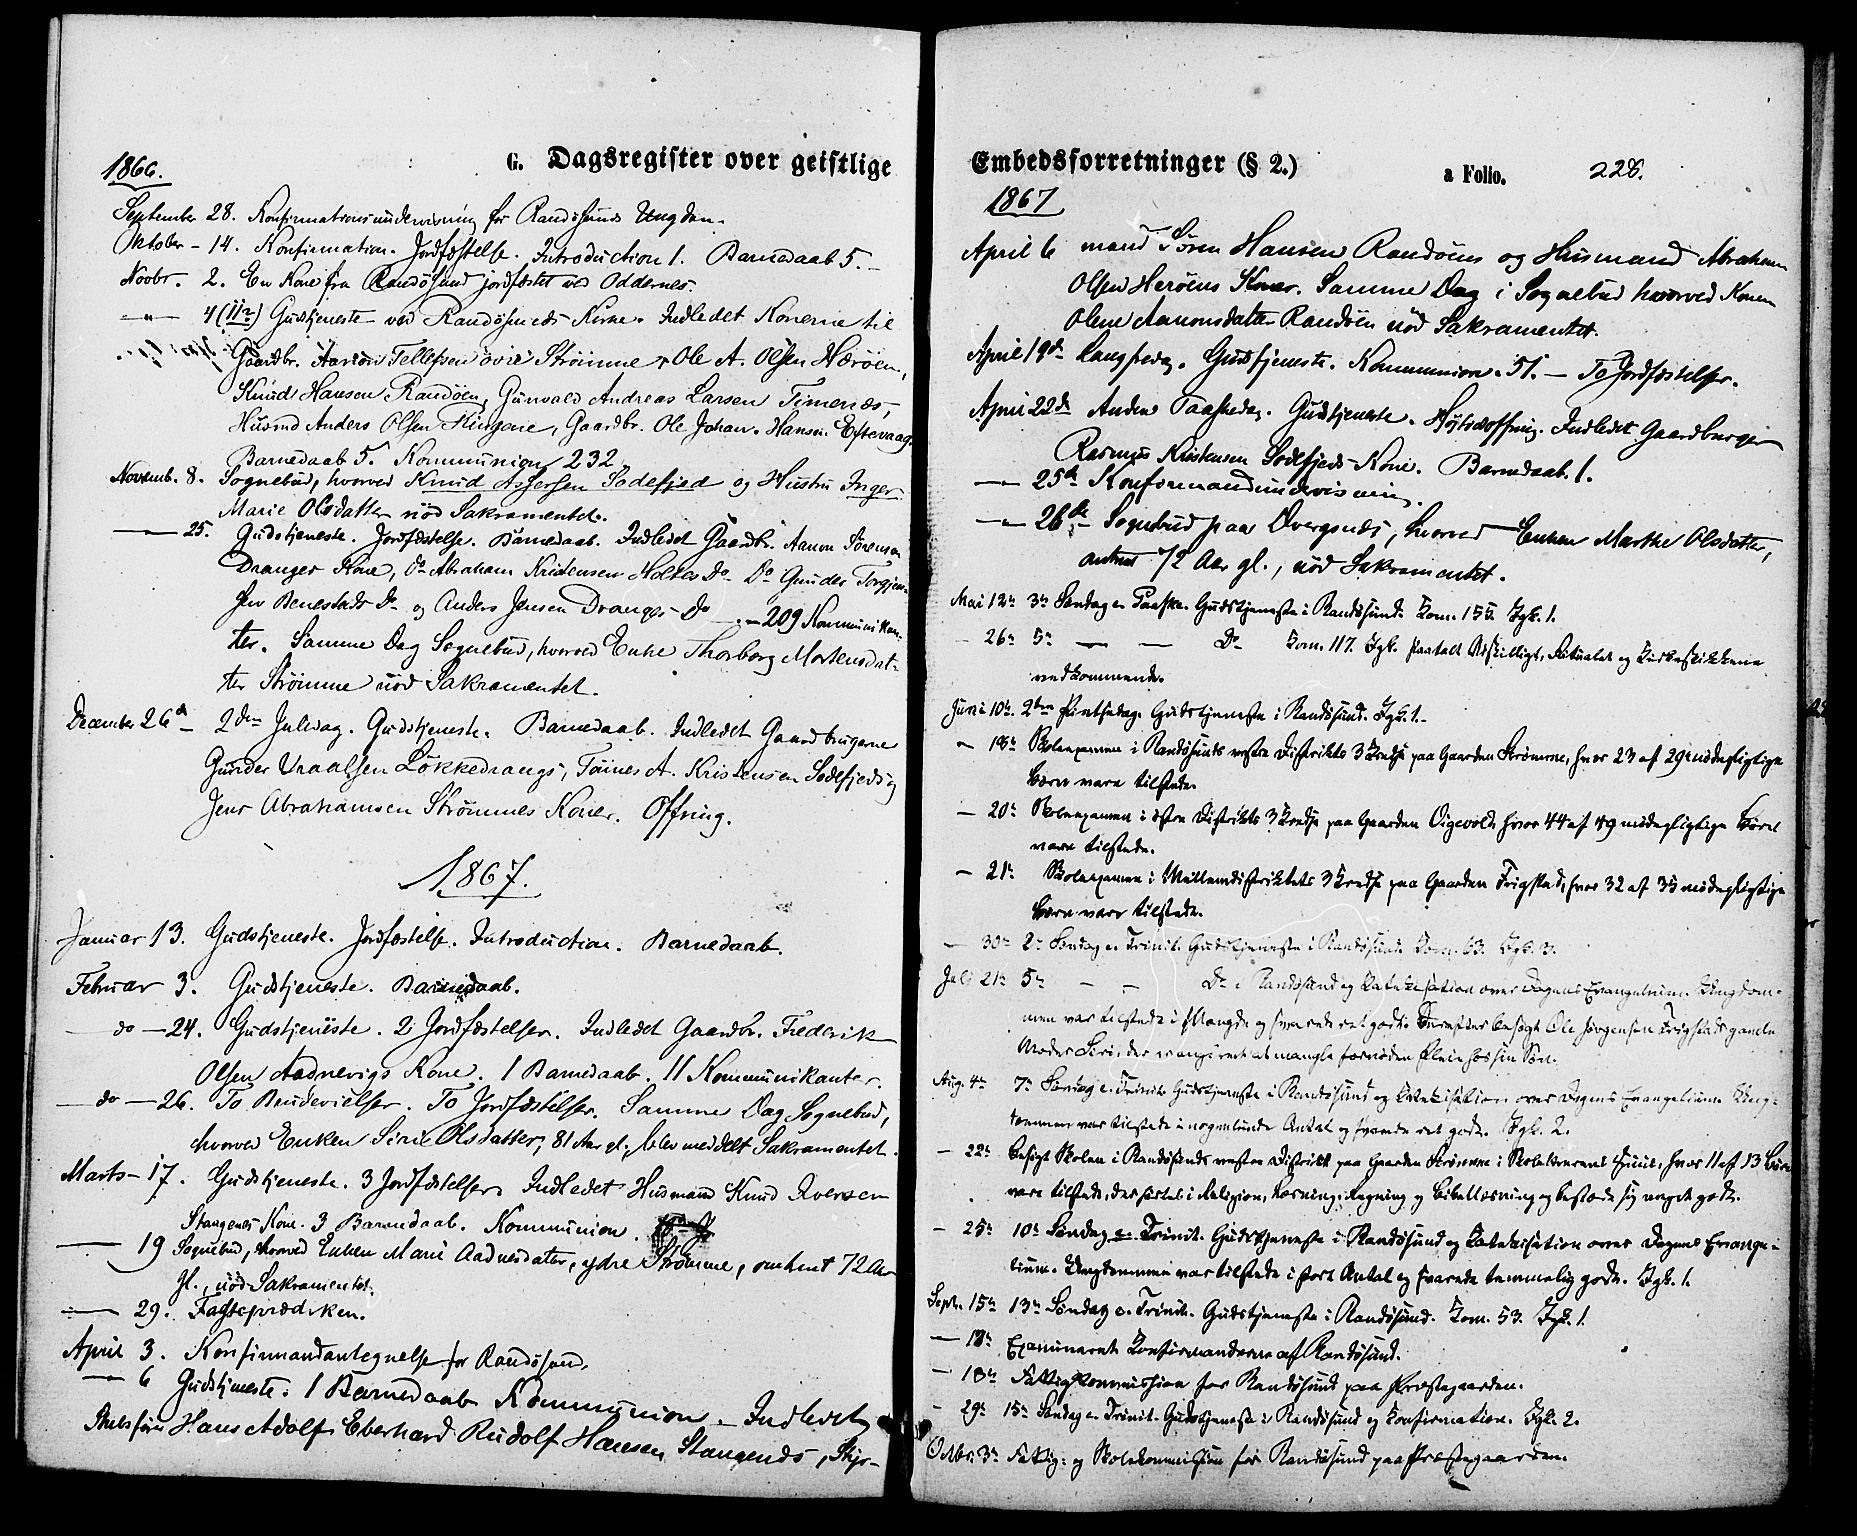 G. Dagsregister over geistlige
1866.
September 28. Konfirmationsundervisning for Randösunds Ungdom.
Oktober – 14. Konfirmation. Jordfæstelse. Introduction 1. Barnedaab 5. –
Novbr. 2. En Kone fra Randösund jordfæstet ved Oddernes.
–"– 4 (11te) Gudstjeneste ved Randösunds Kirke. Indledet Konerne til
Gaardbr. Aanon Tellefsen övre Strömme, Ole A. Olsen Herøen,
Knud Hansen Randöen, Gunvald Andreas Larsen Timenes,
Husmd Anders Olsen Kingene, Gaardbr. Ole Johan Hansen Eftevaag.
Barnedaab 5. Kommunion 232
Novemb. 8. Sognebud, hvorved Knud Assersen Sodefjed og Hustru Inger
Marie Olsdatter nöd Sakramentet.
— 25. Gudstjeneste. Jordfæstelse. Barnedaab. Indledet Gaardbr. Aanon Sörensen
Dranges Kone, Do Abraham Kristensen Holtes Do Do Gunder Torgjen-
sen Benestads Do og Anders Jensen Dranges Do – 209 Kommunikan-
ter. Samme Dag Sognebud, hvorved Enke Thorborg Mortensdat-
ter Strömme nöd Sakramentet.
December 26d – 2den Juledag. Gudstjeneste. Barnedaab. Indledet Gaardbrugerne
Gunder Uraalsen Lökkedrangs, Tönnes A. Kristensen Sodefjeds og
Jens Abrahamsen Strømmes Koner. Offring.
1867.
Januar 13. Gudstjeneste. Jordfæstelse. Introduction. Barnedaab.
Februar 3. Gudstjeneste. Barnedaab.
do – 24. Gudstjeneste. 2 Jordfæstelser. Indledet Gaardbr. Frederik
Olsen Aadnevigs Kone. 1 Barnedaab. 11 Kommunikanter.
– do – 26. To Brudevielser. To Jordfæstelser. Samme Dag Sognebud,
hvorved Enken Siri Olsdatter, 81 Aar gl., blev meddelt Sakramentet.
Marts – 17. Gudstjeneste. 3 Jordfæstelser. Indledet Husmand Knud Iversen
Stangenes Kone. 3 Barnedaab. Kommunion.
— 19 Sognebud, hvorved Enken Marie Aadnesdatter, ydre Strömme, omtrent 72 Aar
gl., nöd Sakramentet.
— 29. Fasteprædiken.
April 3. Konfirmandantegnelse for Randösund.
— 6 Gudstjeneste. 1 Barnedaab Kommunion. – Indledet
Hans Adolf Eberhard Rudolf Hansen Stangenes, Skjr-
Embedsforretninger (§ 2.) a Folio. 228.
1867
April 6 mand Sören Hansen Randöens og Husmand Abraham
Olsen Heröens Koner. Samme Dag i Sognebud hvorved Konen
Olene Aanonsdatter Randöen nöd Sakramentet.
April 19de Langfredag. Gudstjeneste. Kommunion. 51. – To Jordfæstelser.
April 22de Anden Paaskedag. Gudstjeneste. Höjtidsoffring. Indledet Gaardbruger
Rasmus Kristensen Sodefjeds Kone. Barnedaab 1.
–"– 25de Konfirmandundervisning.
–"– 26de – Sognebud paa Dvergsnes, hvorved Enken Marthe Olsdatter,
omtrent 72 Aar gl., nöd Sakramentet.
Mai 12te 3de Søndag e. Paaske. Gudstjeneste i Randösund. Kom. 155. Jgk. 1.
– 26te 5te — — Do Kom. 117. Jgk. paatalt Adskilligt, Ritualet og Kirkeskikkene
vedkommende.
Juni 10de. 2den Pintsedag. Gudstjeneste i Randösund. Jgk. 1. –
– 18de Skoleexamen i Randösunds vestre Distrikts 3 Kredse paa Gaarden Strømme, hvor 23 af 29 mödepligtige
Børn vare tilstede.
– 20de Skoleexamen i østre Distrikts 3 Kredse paa Gaarden Digevold, hvor 44 af 49 mödepligtige Børn
vare tilstede.
– 21de Skoleexamen i Mellemdistriktets 3 Kredse paa Gaarden Frigstad, hvor 32 af 35 mödepligtige
Børn vare tilstede.
— 30te 2de Søndag e. Trinit. Gudstjeneste i Randösund. Kom. 63. Jgk. 3.
Juli 21de 5te – – Do i Randösund og Katekisation over Dagens Evangelium. Ungdom-
men var tilstede i Mængde og svarede ret godt. Derefter besøgt Ole Jørgensen Frigstads gamle
Moder Siri, der er angivet at mangle fornøden Pleie hos sin Søn.
Aug. 4de 7de Søndag e. Trinit. Gudstjeneste i Randösund og Katekisation over Dagens Evangelium. Ung-
dommen var tilstede i nogenlunde Antal og svarede ret godt. Jgk. 2.
– 22de besøgt Skolen i Randösunds vestre Distrikt paa Gaarden Strømme i Skolelærerens Huus, hvor 11 af 13 Børn
vare tilstede, der hørtes i Religion, Læsning, Regning og Bibellæsning og bestode sig meget godt.
– 25de 10de Søndag e. Trinit. Gudstjeneste i Randösund og Katekisation over Dagens Evange-
lium. Ungdommen var tilstede i stort Antal og svarede temmelig godt. Jgk. 1.
Sept. 15de 13de Søndag e. Trinit. Gudstjeneste i Randösund. Kom. 53. Jgk. 1.
— 17de Examineret Konfirmanderne af Randösund.
– 18de Fattigkommission for Randösund paa Præstegaarden.
– 29de 15de Søndag e. Trinit. Gudstjeneste i Randösund og Konfirmation. Jgk. 2.
Octbr. 3de Fattig- og Skolekommission for Randösund paa Præstegaarden.